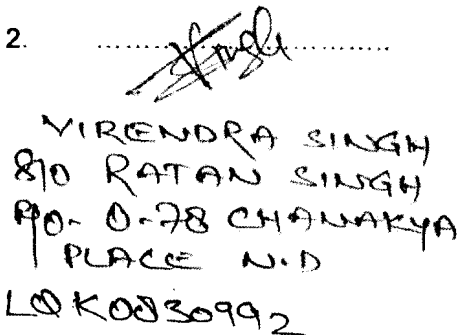 2. ........Singh................
VIRENDRA SINGH
S/O RATAN SINGH
R/O- D-78 CHANAKYA
PLACE N.D
LQK0830992